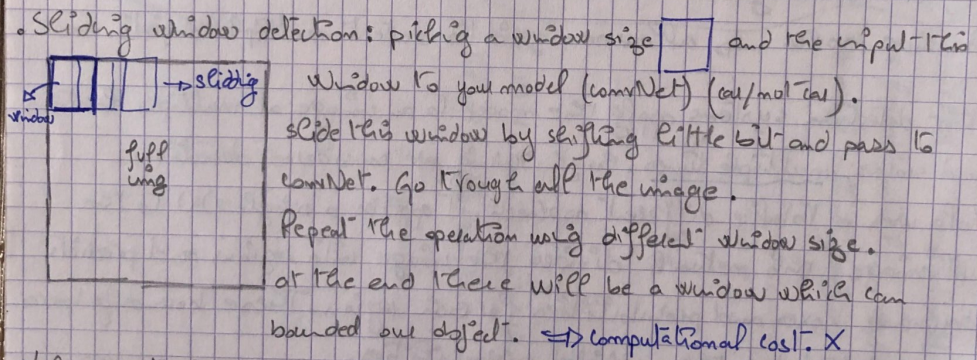 . Sliding window detection: picking a window size and the input this
window to your model (convNet) (car/not car).
→ sliding
window
slide this window by shifting little bit and pass to
full
img
convNet. Go trough all the image.
Repeat the operation using different window size.
at the end there will be a window which can
bounded our object. ⇒ computational cost. X